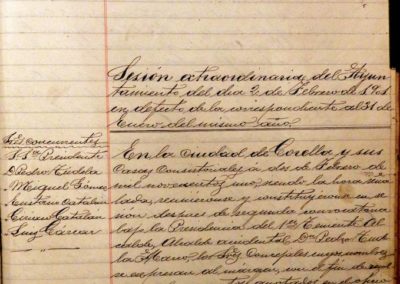 Sesión extraordinaria del Ayun-
tamiento del dia 2 de Febrero de 1901
en defecto de la correspondiente al 31 de
Enero del mismo año.
Sres concurrentes
Sr Presidente
D Pedro Tudela
Miguel Gómez
Catalán
Catalán
En la ciudad de Corella y sus
Casas Consistoriales a dos de Febrero de
mil novecientos uno, siendo la hora seña-
lada, y en se-
sión despues de segunda convocatoria
bajo la Presidencia del 1er Teniente Al-
calde, Alcalde accidental, Dn Pedro
los Sres Concejales cuyos nombres
se expresan al margen, con el fin de